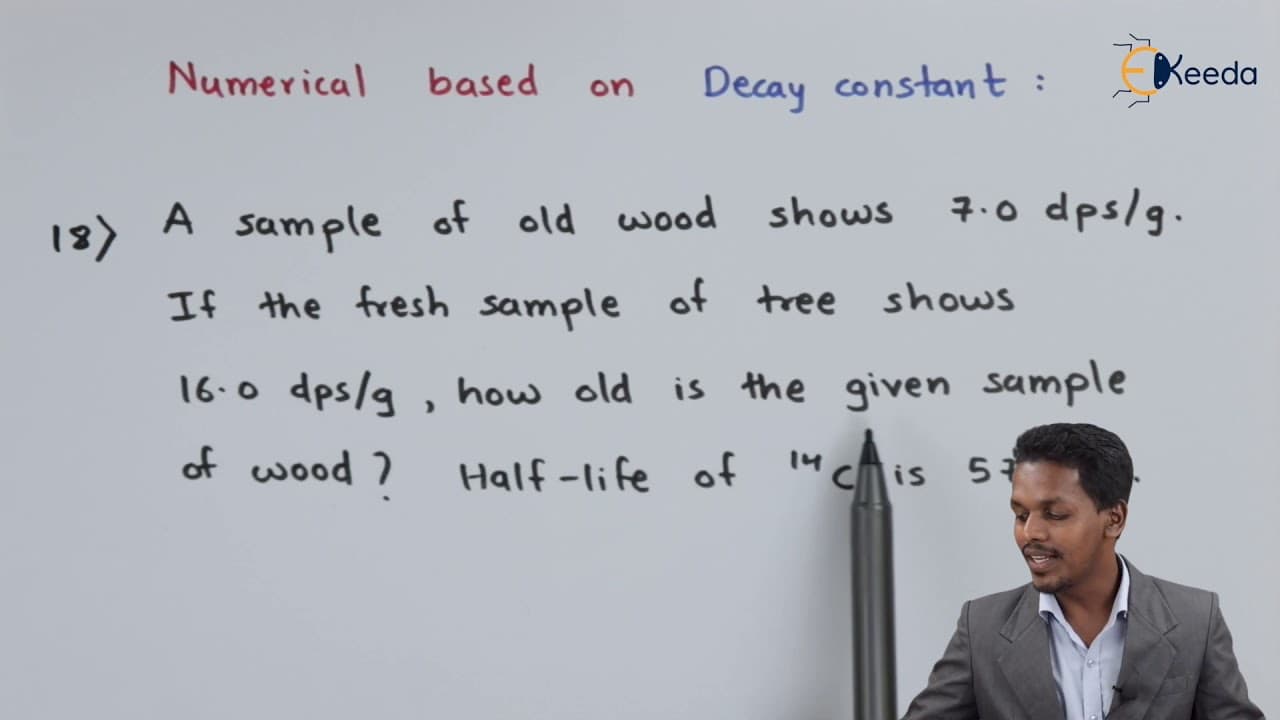 Numerical based on Decay constant :
EKeeda
18) A sample of old wood shows 7.0 dps/g.
If the fresh sample of tree shows
16.0 dps/g, how old is the given sample
of wood? Half-life of ¹⁴C is